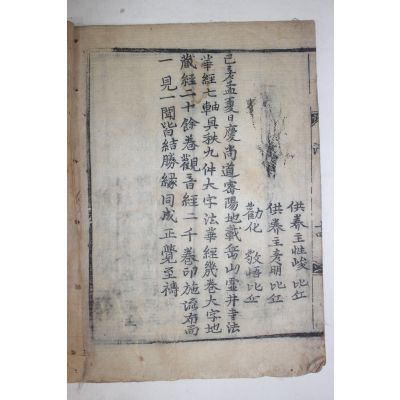 供養主性峻 比丘
供養主明比丘
勸化 敬悟比丘
己亥孟夏日慶尚道密陽地載岳山靈井寺法
華經七軸具秩九件大字法華經幾卷大字地
藏經二十餘卷觀音經二千卷印施流布而
一見一聞皆結勝緣同成正覺至禱